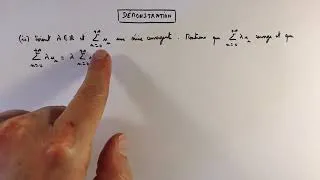 DÉMONSTRATION
(iv) Soient λ ∈ ℝ et ∑_{n=0}^{+∞} u_n une série convergente. Montrons que ∑_{n=0}^{+∞} λu_n converge et que
∑_{n=0}^{+∞} λu_n = λ ∑_{n=0}^{+∞}